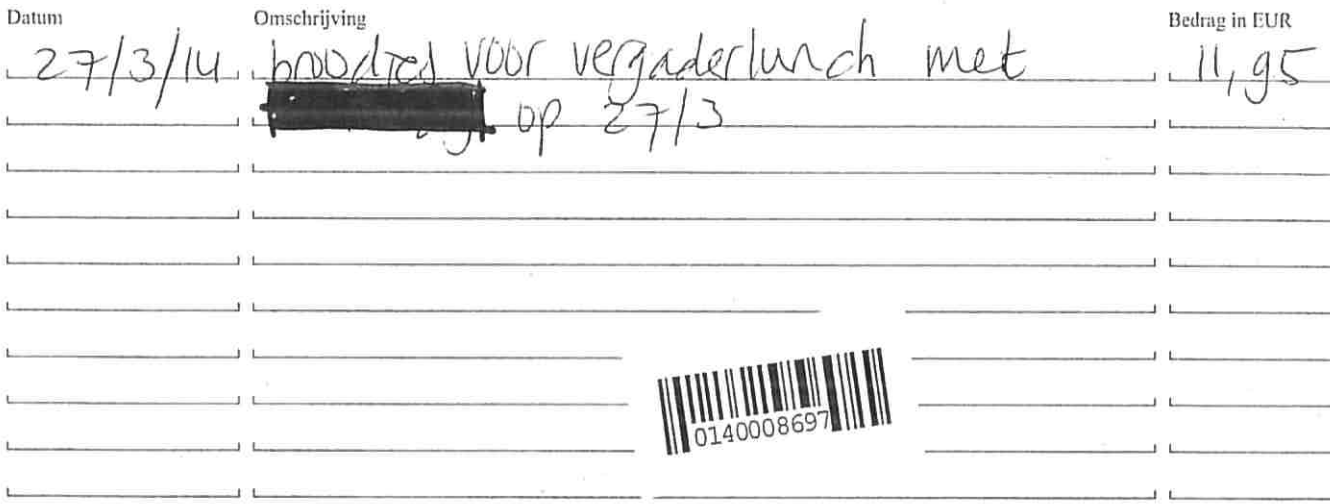 Datum Omschrijving Bedrag in EUR
27/3/14 broodjes voor vergaderlunch met 11,95
op 27/3
0140008697